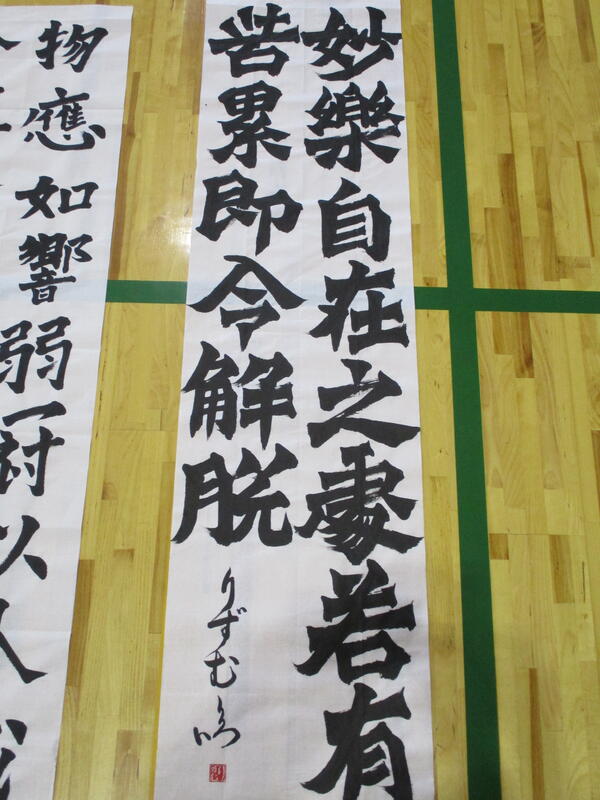 妙樂自在之處若有
苦累即令解脱
りずむ
物應如響
弱
以